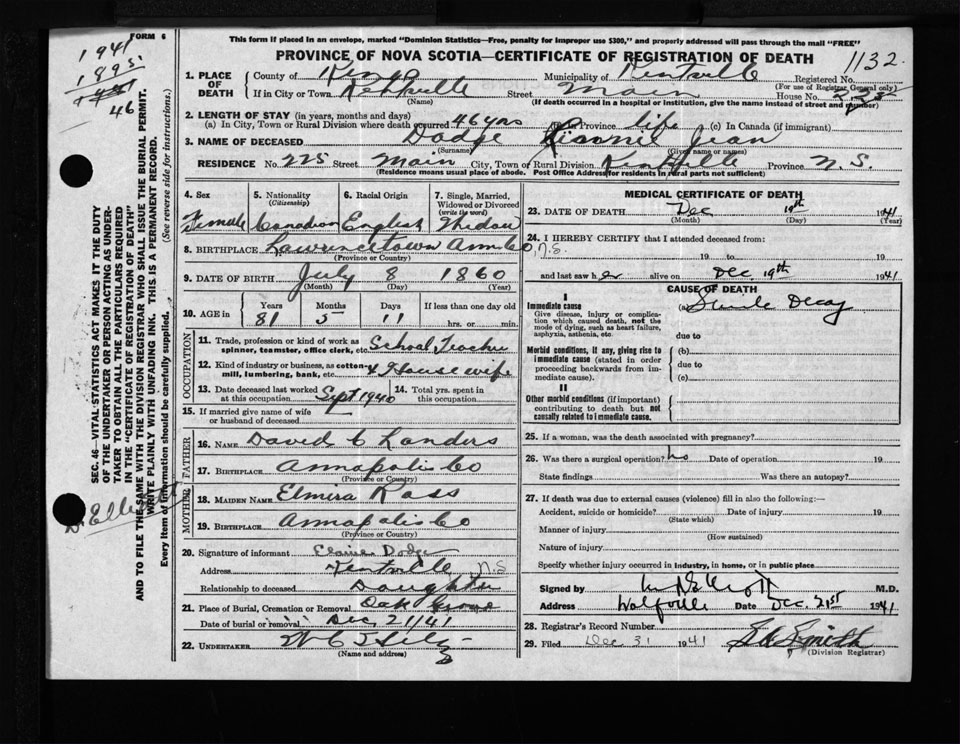 FORM 6
This form if placed in an envelope, marked "Dominion Statistics—Free, penalty for improper use $300," and properly addressed will pass through the mail "FREE"
PROVINCE OF NOVA SCOTIA—CERTIFICATE OF REGISTRATION OF DEATH
1941
1895
46
1132
1. PLACE OF DEATH County of Kings Municipality of Kentville Registered No.
(For use of Registrar General only)
If in City or Town Kentville Street Main House No. 225
(Name) (If death occurred in a hospital or institution, give the name instead of street and number)
2. LENGTH OF STAY (in years, months and days)
(a) In City, Town or Rural Division where death occurred 46 yrs (b) In Province life (c) In Canada (if immigrant)
3. NAME OF DECEASED Dodge Jean
(Surname) (Given name or names)
RESIDENCE No. 225 Street Main City, Town or Rural Division Kentville Province N.S.
(Residence means usual place of abode. Post Office Address for residents in rural parts not sufficient)
4. Sex 5. Nationality (Citizenship) 6. Racial Origin 7. Single, Married, Widowed or Divorced (write the word)
Female Canadian English Widow
8. BIRTHPLACE Lawrencetown Ann Co, N.S.
(Province or Country)
9. DATE OF BIRTH July 8 1860
(Month) (Day) (Year)
10. AGE in Years Months Days If less than one day old
81 5 11 hrs. or min.
OCCUPATION
11. Trade, profession or kind of work as spinner, teamster, office clerk, etc. School Teacher
12. Kind of industry or business, as cotton-mill, lumbering, bank, etc. & Housewife
13. Date deceased last worked at this occupation Sept 1940 14. Total yrs. spent in this occupation
15. If married give name of wife or husband of deceased
FATHER
16. NAME David C Landers
17. BIRTHPLACE Annapolis Co
(Province or Country)
MOTHER
18. MAIDEN NAME Elmira Ross
19. BIRTHPLACE Annapolis Co
(Province or Country)
20. Signature of informant Elaine Dodge
Address Kentville N.S
Relationship to deceased Daughter
21. Place of Burial, Cremation or Removal Oak Grove
Date of burial or removal Dec, 21/41
22. UNDERTAKER W C
(Name and address)
MEDICAL CERTIFICATE OF DEATH
23. DATE OF DEATH Dec 19th 1941
(Month) (Day) (Year)
24. I HEREBY CERTIFY that I attended deceased from:
19 to 19
and last saw her alive on Dec. 19th 1941
CAUSE OF DEATH
I
Immediate cause (a) Senile Decay
Give disease, injury or complication which caused death, not the mode of dying, such as heart failure, asphyxia, asthenia, etc.
due to
Morbid conditions, if any, giving rise to immediate cause (stated in order proceeding backwards from immediate cause).
(b)
due to
(c)
II
Other morbid conditions (if important) contributing to death but not causally related to immediate cause.
25. If a woman, was the death associated with pregnancy?
26. Was there a surgical operation? no Date of operation 19
State findings Was there an autopsy?
27. If death was due to external causes (violence) fill in also the following:—
Accident, suicide or homicide? Date of injury 19
(State which)
Manner of injury
(How sustained)
Nature of injury
Specify whether injury occurred in Industry, in home, or in public place
Signed by M.D.
Address Wolfville Date Dec. 21st 1941
28. Registrar's Record Number
29. Filed Dec 31 1941 Smith
(Division Registrar)
SEC. 46—VITAL STATISTICS ACT MAKES IT THE DUTY
OF THE UNDERTAKER OR PERSON ACTING AS UNDER-
TAKER TO OBTAIN ALL THE PARTICULARS REQUIRED
IN THE "CERTIFICATE OF REGISTRATION OF DEATH"
AND TO FILE THE SAME WITH THE DIVISION REGISTRAR WHO SHALL ISSUE THE BURIAL PERMIT.
WRITE PLAINLY WITH UNFADING INK. THIS IS A PERMANENT RECORD.
Every item of information should be carefully supplied. (See reverse side for instructions.)
Dr Elliott